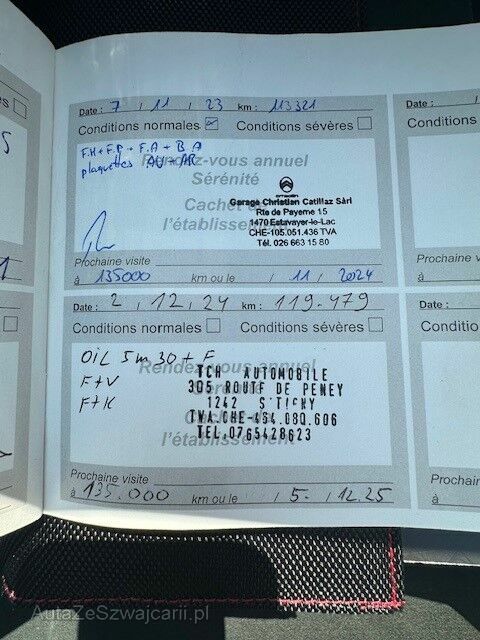 Date : 7 / 11 / 23 km : 113321
Conditions normales Conditions sévères :
F.H + F.P + F.A + B A
plaquettes AV + AR
Rendez-vous annuel
Sérénité
Cachet de
l'établissement
CITROËN
Garage Christian Catillaz Sàrl
Rte de Payerne 15
1470 Estavayer-le-Lac
CHE-105.051.436 TVA
Tél. 026 663 15 80
Prochaine visite
à 135000 km ou le / 11 / 2024
Date : 2 / 12 / 24 km : 119.479
Conditions normales Conditions sévères :
OIL 5w30 + F
F+V
F+K
Rendez-vous annuel
Sérénité
Cachet de
l'établissement
TCH AUTOMOBILE
305 ROUTE DE PENEY
1242 S
TVA.CHE-454.080.606
TEL.0765428623
Prochaine visite
à 135.000 km ou le / 5. / 12.25
Date :
Conditio
Date :
Conditio
Prochain
à
AutaZeSzwajcarii.pl